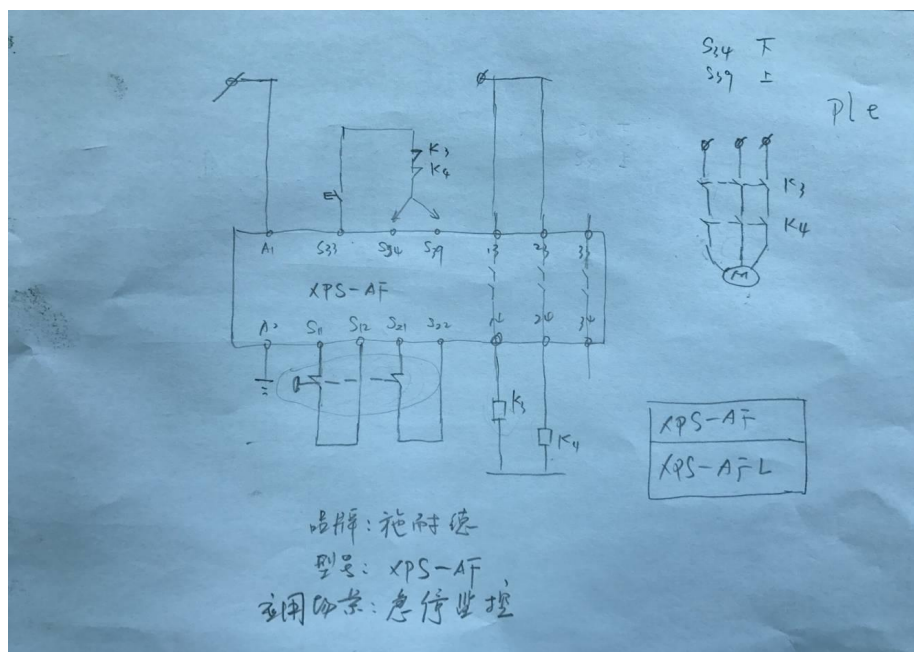 S34 下
S39 上
PLe
K3
K4
K3
K4
A1 S33 S34 S39 13 23 33
XPS-AF
A2 S11 S12 S21 S22 14 24 34
M
K3
K4
XPS-AF
XPS-AFL
品牌:施耐德
型号: XPS-AF
应用场景:急停监控